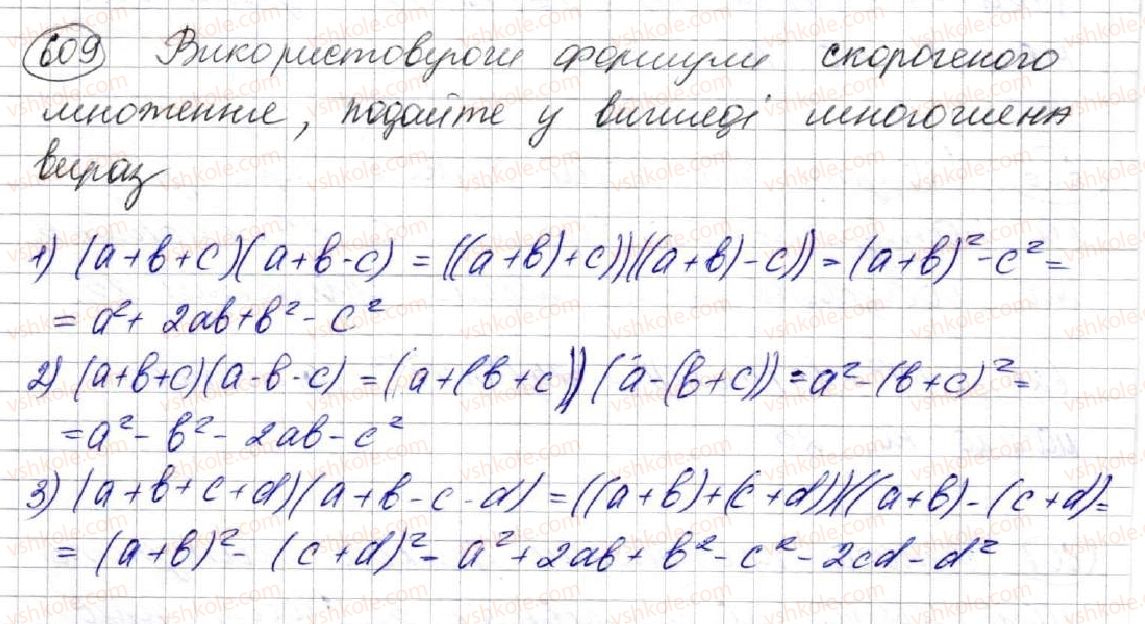 609 Використовуючи формули скороченого
множення, подайте у вигляді многочлена
вираз
1) (a+b+c)(a+b-c) = ((a+b)+c))((a+b)-c)) = (a+b)²-c² =
= a²+ 2ab+b²-c²
2) (a+b+c)(a-b-c) = (a+(b+c))(a-(b+c)) = a²-(b+c)² =
= a²-b²-2ab-c²
3) (a+b+c+d)(a+b-c-d) = ((a+b)+(c+d))((a+b)-(c+d)=
= (a+b)²-(c+d)²- a²+2ab+b²-c²-2cd-d²